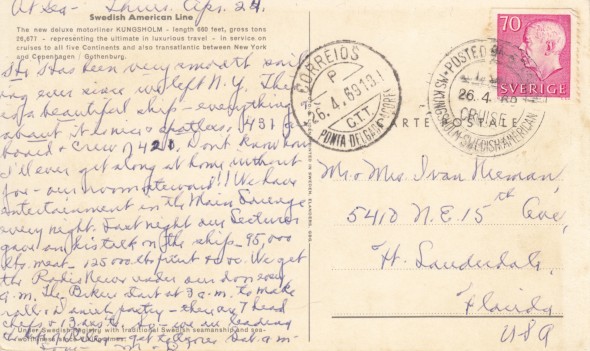 At Sea - Thurs. Apr. 24
Swedish American Line
The new deluxe motorliner KUNGSHOLM - length 660 feet, gross tons
26,677 - representing the ultimate in luxurious travel - in service on
cruises to all five Continents and also transatlantic between New York
and Copenhagen / Gothenburg.
Has been very smooth sail-
ing ever since we left N.Y. This
is a beautiful ship - everything
about it is nice & spotless. 431
board & Crew of 420. Don't know how
I'll ever get along at home without
our room steward!! We have
entertainment in the Main Lounge
every night. Last night our Lecturer
gave his talk on the ship - 95,000
lbs. meat - 125,000 lbs. fruit & We get
the Radio News under our door every
a.m. The Bakers start at 3 a.m. to make
rolls & pastry - they have 7 head
chefs &
Under Swedish Registry with traditional Swedish seamanship and sea-
PRINTED IN SWEDEN
CORREIOS
P
26.4.69
CTT
PONTA DELGADA
POSTED
26.4.69
CRUISE
M/S KUNGSHOLM SWEDISH AMERICAN
70
SVERIGE
CARTE POSTALE
Mr. & Mrs. Ivan Nieman,
5410 N.E. 15th Ave,
Ft. Lauderdale,
Florida
USA